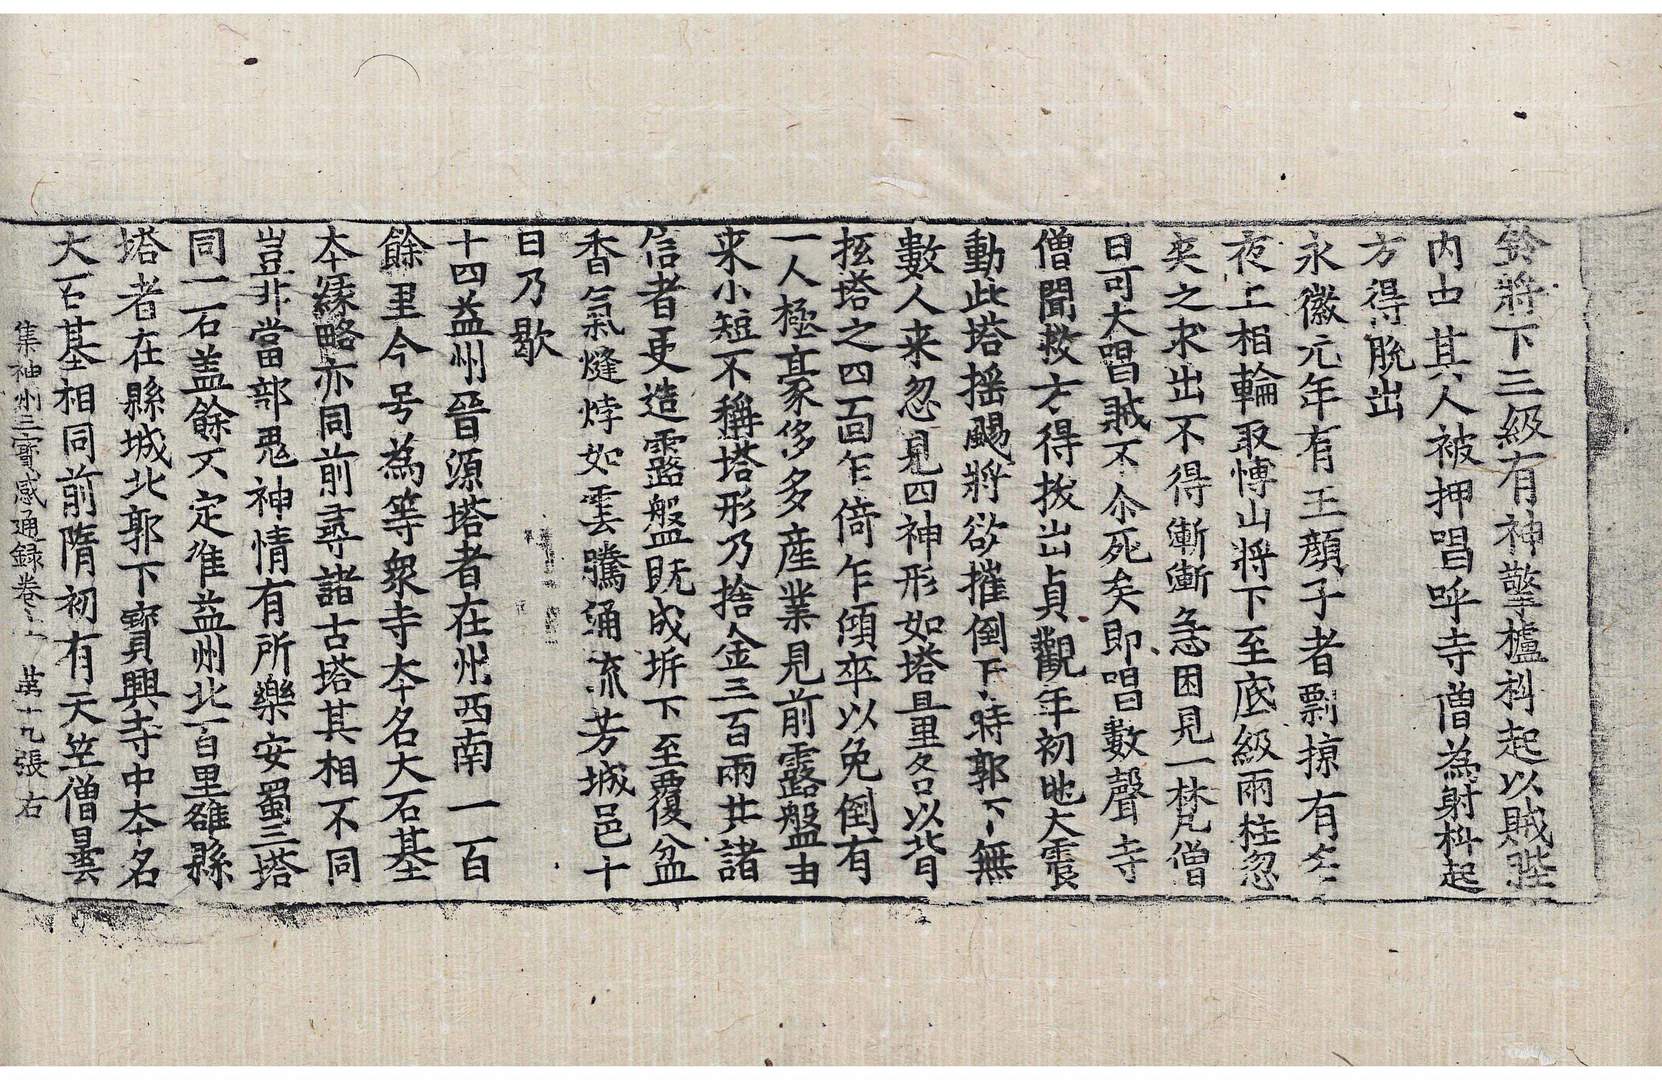 鈴將下三級有神擎櫨枓起以賊陛
內中其人被押唱呼寺僧為射枓起
方得脫出
永徽元年有王顏子者剽掠有
夜上相輪取愽山將下至底級兩柱忽
夾之求出不得漸漸急困見一梵僧
曰可大唱賊不尒死矣即唱數聲寺
僧聞救方得拔出貞觀年初地大震
動此塔搖颺將欲摧倒下時郭下無
數人来忽見四神形如塔量各以背
抁塔之四面乍倚乍傾卒以免倒有
一人極豪侈多產業見前露盤由
来小短不稱塔形乃捨金三百兩共諸
信者更造露盤既成坼下至覆盆
香氣熢㶿如雲騰涌流芳城邑十
日乃歇
十四益州晉源塔者在州西南一百
餘里今号為等衆寺夲名大石基
夲緣略亦同前尋諸古塔其相不同
豈非當部鬼神情有所樂安蜀三塔
同一石盖餘不定准益州北百里雒縣
塔者在縣城北郭下寳興寺中夲名
大石基相同前隋初有天竺僧曇
集神州三寳感通録卷上 苐十九張 右